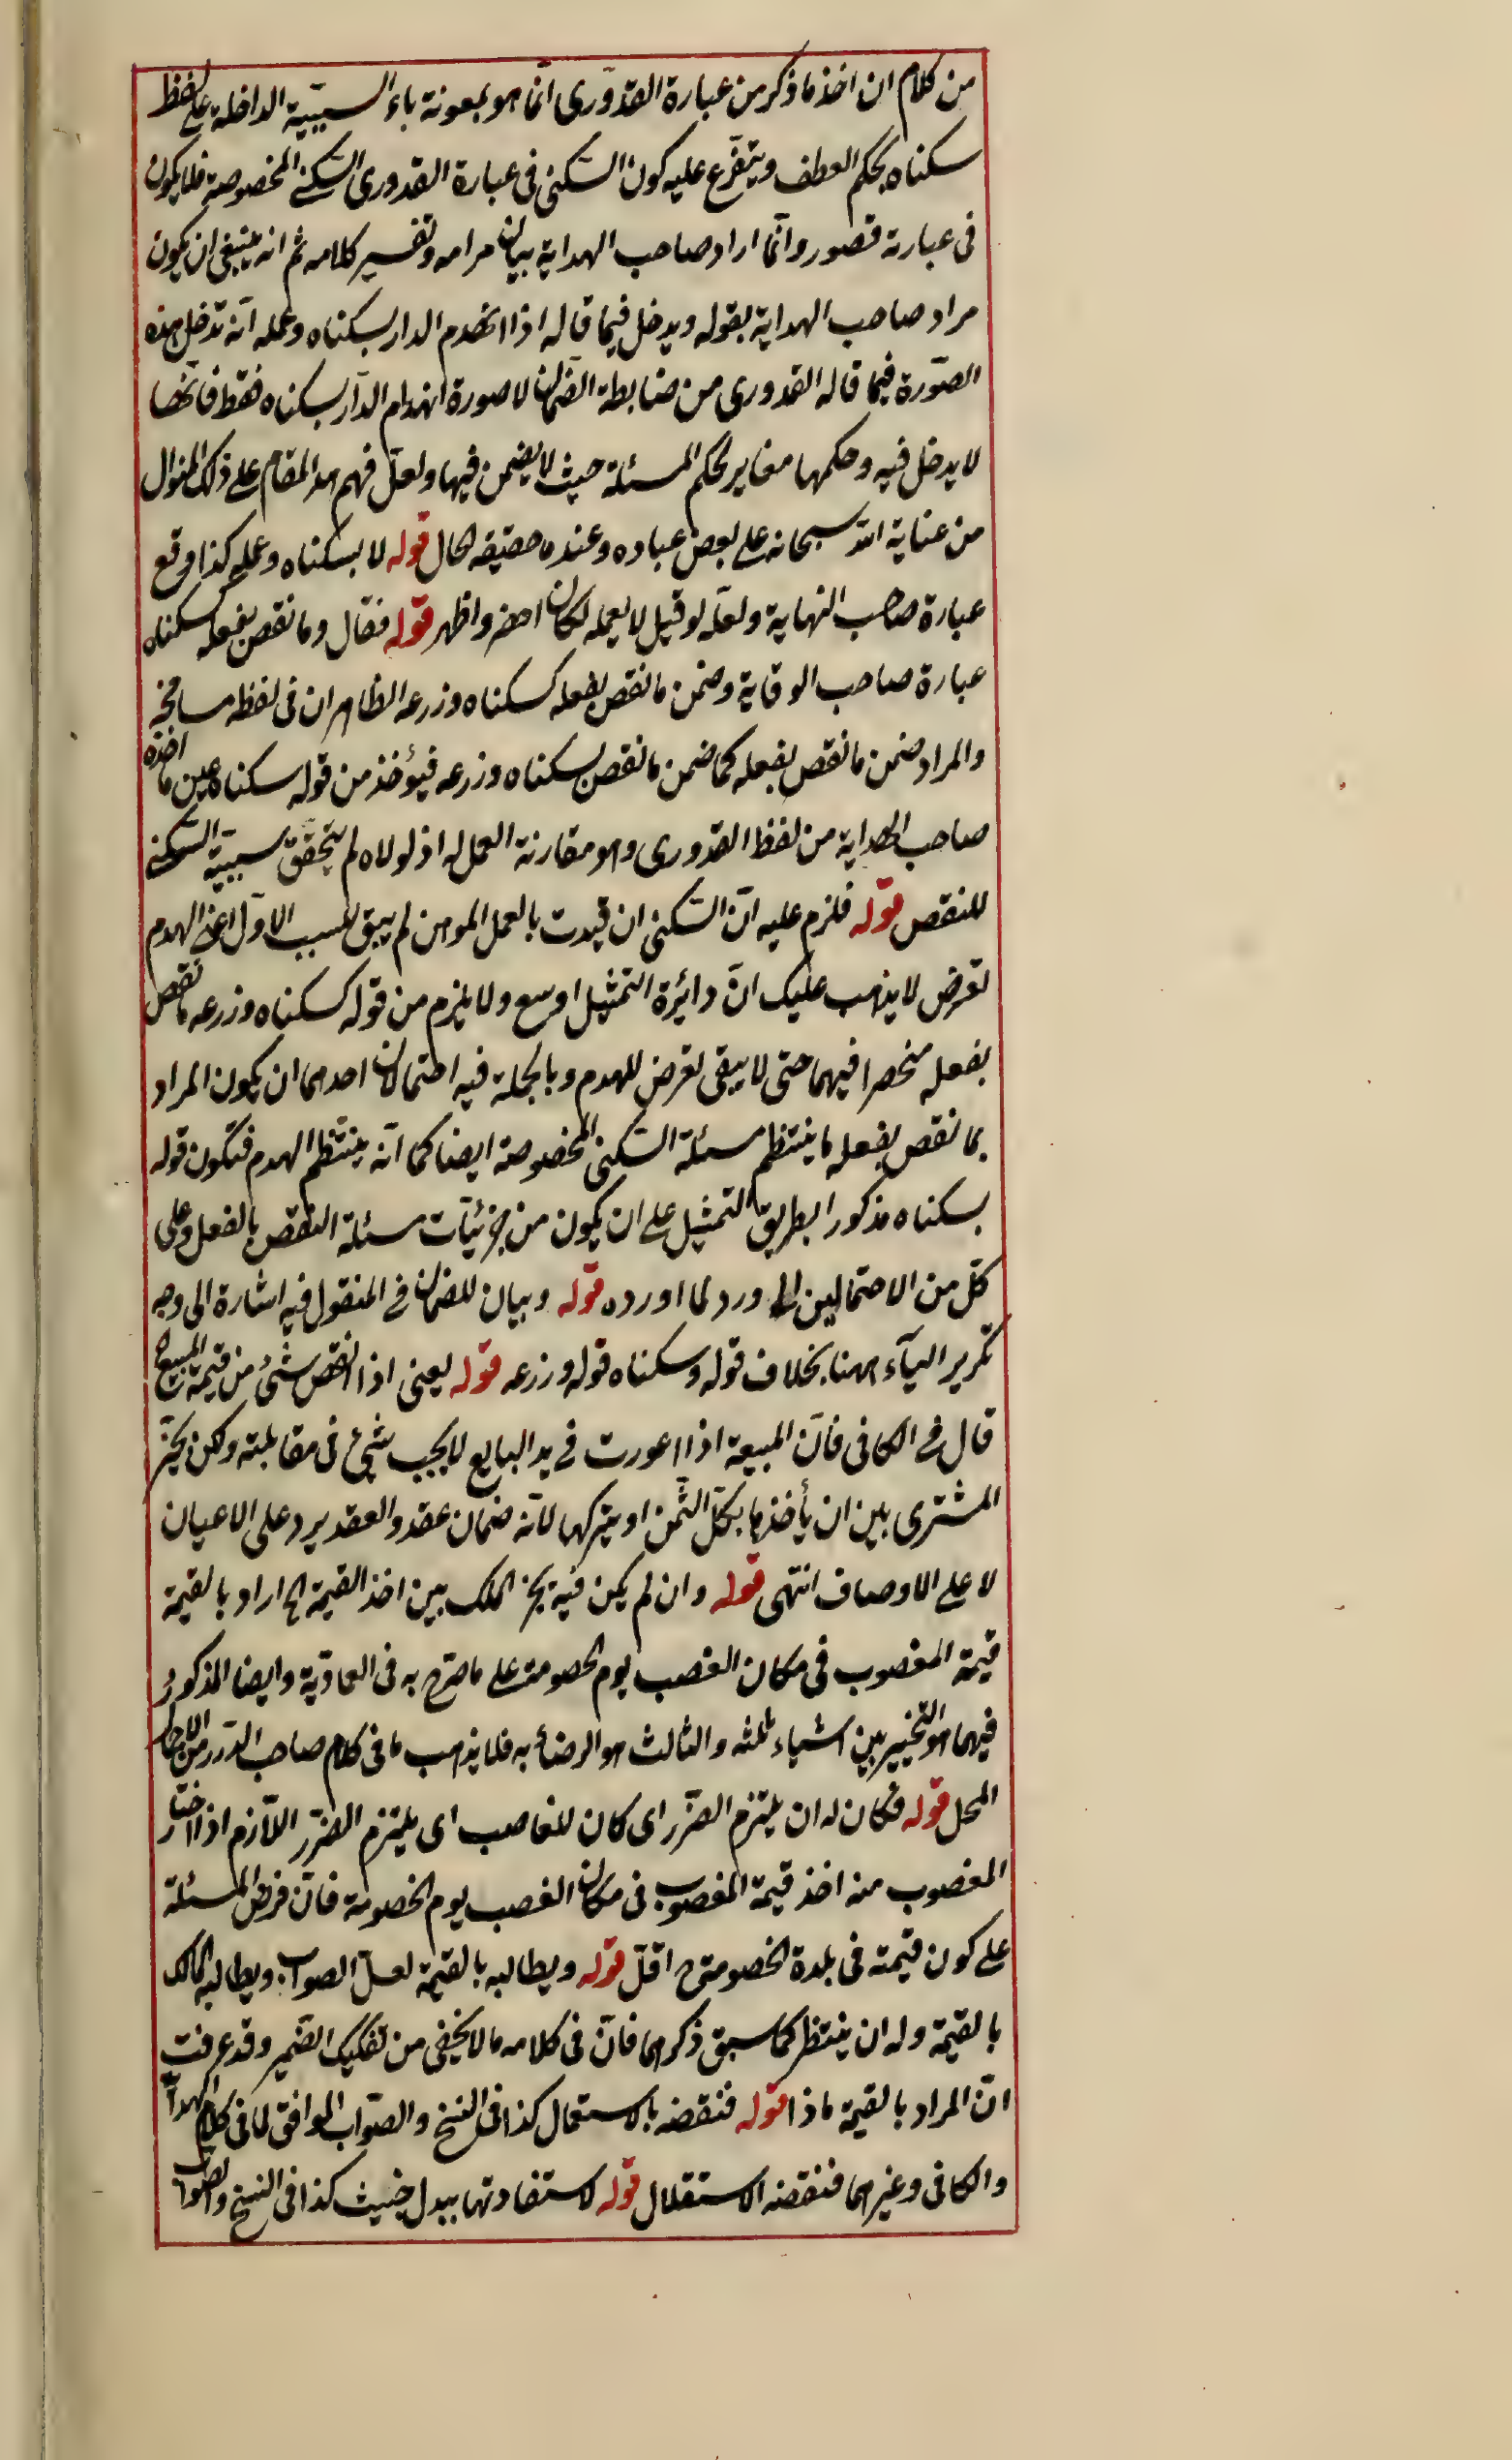 من كلام ان اخذ ما ذكر من عبارة القدوري انما هو بمعونة باء السببية الداخلة على لفظ
سكناه بحكم العطف ويتفرع عليه كون السكنى فى عبارة القدورى السكنى المخصوصة فلا يكون
فى عبارته قصور وانما اراد صاحب الهداية بيان مرامه وتفسير كلامه ثم انه ينبغى ان يكون
مراد صاحب الهداية بقوله ويدخل فيما قاله اذا انهدم الدار بسكناه وعمله انه تدخل هذه
الصورة فيما قاله القدورى من ضابطة الضمان لا صورة انهدام الدار بسكناه فقط فانها
لا يدخل فيه وحكمها مغاير لحكم المسئلة حيث لا يضمن فيها ولعل فهم هذا المقام على ذلك المنوال
من عناية الله سبحانه على بعض عباده وعنده حقيقة الحال قوله لا بسكناه وعمله كذا وقع
عبارة صاحب النهاية ولعله لو قيل لا بعمله لكان اخصر واظهر قوله فقال وما نقص بفعله كسكناه
عبارة صاحب الوقاية وضمن ما نقص بفعله كسكناه وزرعه الظاهر ان فى لفظه مسامحة
والمراد ضمن ما نقص بفعله كما ضمن ما نقص بسكناه وزرعه فيؤخذ من قوله سكناه عين ما اخذه
صاحب الهداية من لفظ القدورى وهو مقارنة العمل له اذ لولاه لم يتحقق سببية السكنى
للنقص قوله فلزم عليه ان السكنى ان قيدت بالعمل الموهن لم يبق للسبب الاول اعنى الهدم
تعرض لا يذهب عليك ان دائرة التمثيل اوسع ولا يلزم من قوله كسكناه وزرعه ما نقص
بفعله منحصرا فيهما حتى لا يبقى تعرض للهدم وبالجملة فيه احتمالان احدهما ان يكون المراد
بما نقص بفعله ما ينتظم مسئلة السكنى المخصوصة ايضا كما انه ينتظم الهدم فتكون قوله
بسكناه مذكورا بطريق التمثيل على ان يكون من جزئيات مسئلة النقص بالفعل وعلى
كل من الاحتمالين لا ورد لما اورده قوله وبيان للضمان فى المنقول فيه اشارة الى وجه
تكرير الباء ههنا بخلاف قوله وسكناه قوله وزرعه قوله يعنى اذا انقص شئ من قيمة المبيع
قال فى الكافى فان المبيعة اذا اعورت فى يد البايع لا يجب شئ فى مقابلته ولكن يخير
المشترى بين ان يأخذها بكل الثمن او يتركها لانه ضمان عقد والعقد يرد على الاعيان
لا على الاوصاف انتهى قوله وان لم يكن فيه يخير المالك بين اخذ القيمة الخ اراد بالقيمة
قيمة المغصوب فى مكان الغصب يوم الخصومة على ما صرح به فى العمادية وايضا المذكور
فيهما هو التخيير بين اشياء ثلثة والثالث هو الرضاء به فلا يذهب ما فى كلام صاحب الدرر من الاجمال
المخل قوله فكان له ان يلتزم الضرر اى كان للغاصب اى يلتزم الضرر اللازم اذا اختار
المغصوب منه اخذ قيمة المغصوب فى مكان الغصب يوم الخصومة فان فرض المسئلة
على كون قيمته فى بلدة الخصومة اقل قوله ويطالبه بالقيمة لعل الصواب ويطالبه المالك
بالقيمة وله ان ينتظر كما سبق ذكرهما فان فى كلامه ما لا يخفى من تفكيك الضمير وقد عرفت
ان المراد بالقيمة ماذا قوله فنقصه بالاستعمال كذا فى النسخ والصواب الموافق لما فى كلام الهداية
والكافى وغيرهما فنقصه الاستغلال قوله لاستفادتها ببدل خبيث كذا فى النسخ والصواب